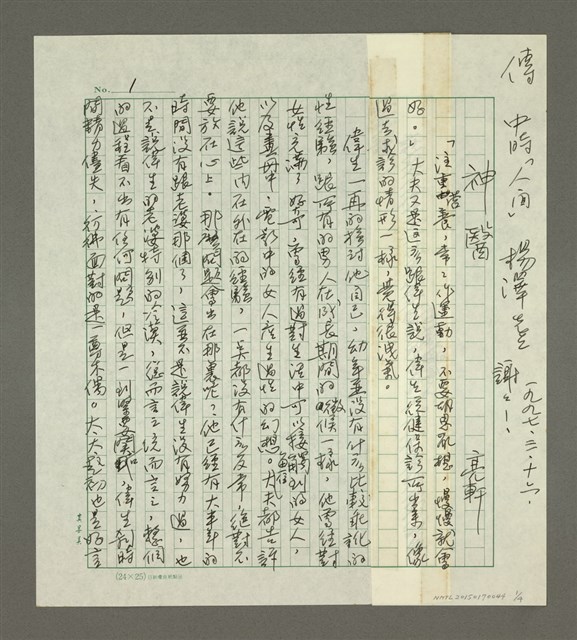 傳 中時「人間」 楊澤
一九九七.三.十六
謝謝!
神醫
亮軒
「注重營養,多作運動,不要胡思亂想,慢慢就會
好。」大夫又是這麼跟偉生說,偉生從健保診所出來,像
過去求診的情形一樣,覺得很洩氣。
偉生一再的檢討他自己,幼年並沒有什麼比較乖訛的
性經驗,跟所有的男人在成長期間的徵候一樣,他曾經對
女性充滿了好奇,曾經有過對生活中可以接觸到的女人,
以及畫冊中、電影中的女人產生過性的幻想。大夫都告訴
他說這些內在外在的經驗,一點都沒有什麼反常,絕對不
要放在心上。那麼問題會出在那裏呢?他已經有大半年的
時間沒有跟老婆那個了,這並不是說偉生沒有努力過,也
不是說偉生的老婆特別的冷漠,從而言之,統而言之,整個
的過程看不出有任何問題,但是一到緊要關頭,偉生就時
間精力盡失,彷彿面對的是一尊木偶。太太起初也是好言
No. 1
(24×25)
NMTL20150170044
1/9